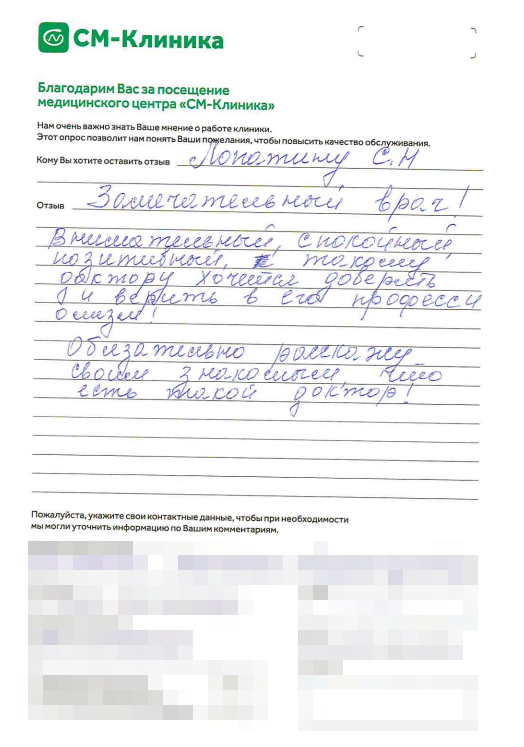 СМ-Клиника
Благодарим Вас за посещение
медицинского центра «СМ-Клиника»
Нам очень важно знать Ваше мнение о работе клиники.
Этот опрос позволит нам понять Ваши пожелания, чтобы повысить качество обслуживания.
Кому Вы хотите оставить отзыв Лопатину С.Н
Отзыв Замечательный врач!
Внимательный, спокойный
позитивный, такому
доктору хочется доверять
и верить в его професси
онализм!
Обязательно расскажу
своим знакомым что
есть такой доктор!
Пожалуйста, укажите свои контактные данные, чтобы при необходимости
мы могли уточнить информацию по Вашим комментариям.